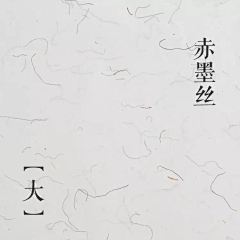 赤墨丝
【大】